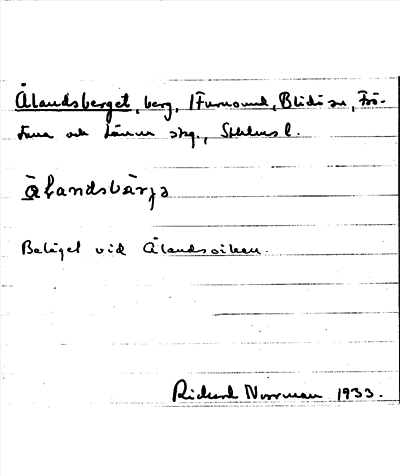 Ålandsberget, berg, i Furusund, Blidö sn, Frö-
tuna och Länna skg., Sthlms l.
Ålandsbärjə
Beläget vid Ålandsviken.
Rickard Norrman 1933.